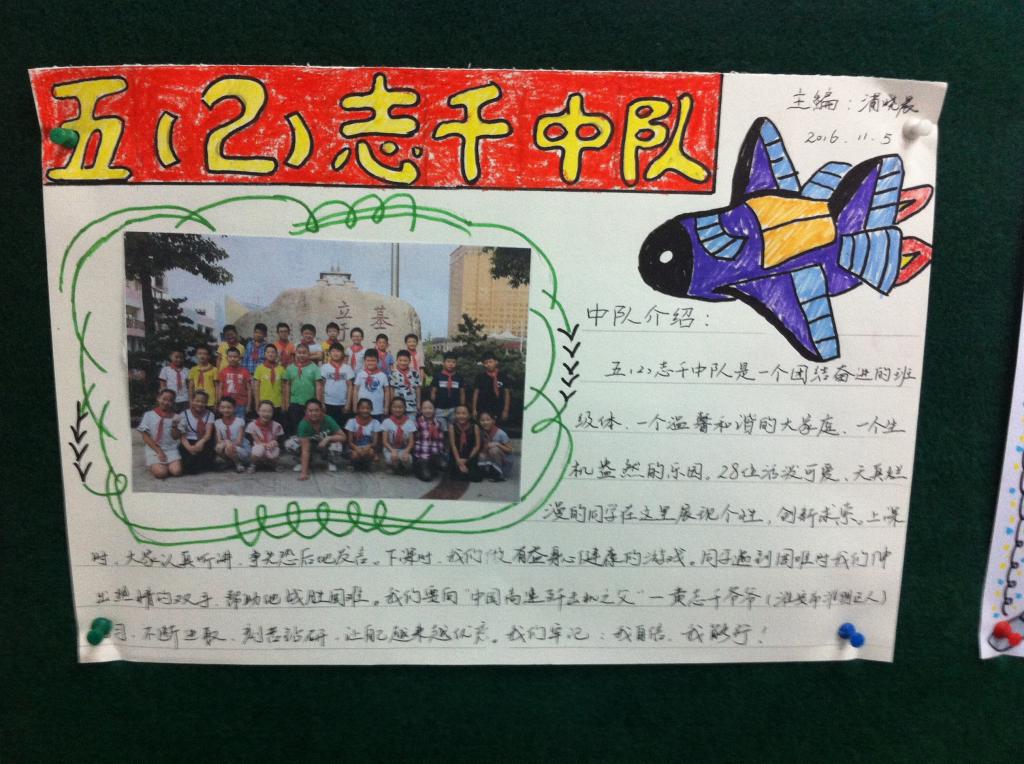 五(2)志千中队
主编：浦晓晨
2016.11.5
立 基
中队介绍：
五(2)志千中队是一个团结奋进的班
级体、一个温馨和谐的大家庭、一个生
机盎然的乐园。28位活泼可爱、天真烂
漫的同学在这里展现个性，创新求索。上课
时，大家认真听讲，争先恐后地发言。下课时，我们做有益身心健康的游戏。同学遇到困难时我们伸
出热情的双手，帮助他战胜困难。我们要向“中国高速歼击机之父”一黄志千爷爷（淮安市淮阴区人）
习，不断进取、刻苦钻研，让自己越来越优秀。我们牢记：我自信，我能行！